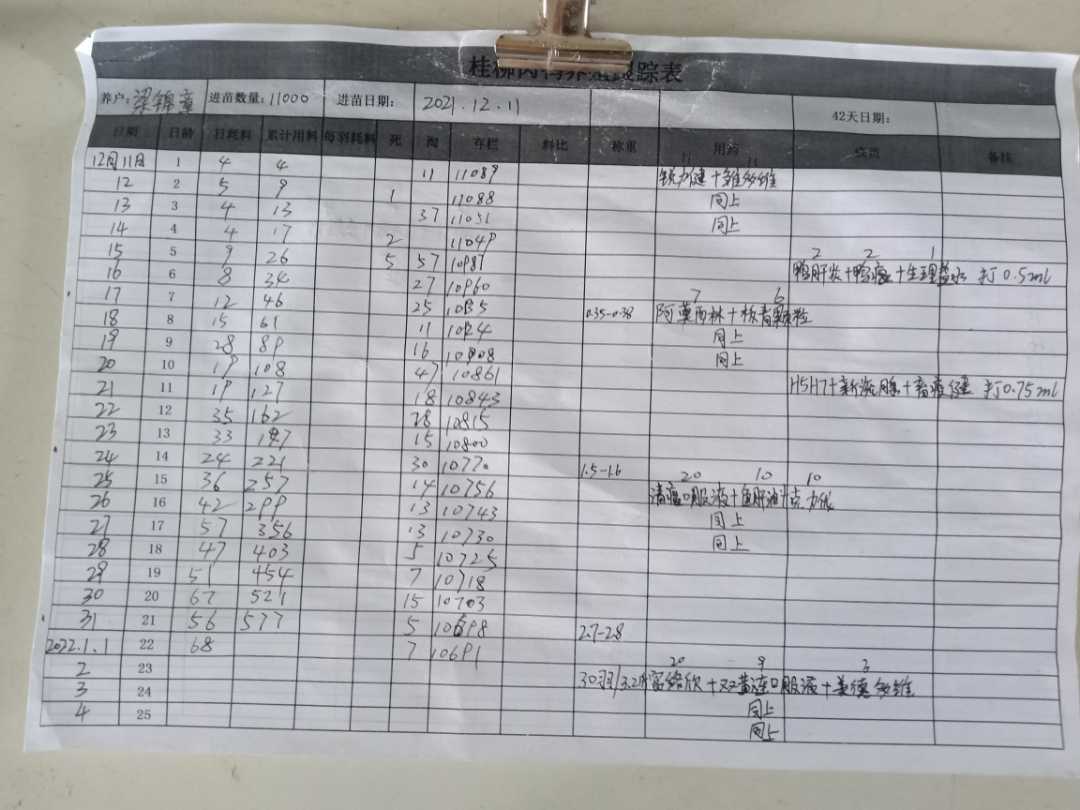 桂柳肉鸭养殖跟踪表
养户: 进苗数量: 11000 进苗日期: 2021.12.11 42天日期:
日期 日龄 日耗料 累计用料 每羽耗料 死 淘 存栏 料比 称重 用药 疫苗 备注
12月11日 1 4 4 11 11089 11 11
12 2 5 9 1 11088 +维多维
13 3 4 13 37 11051 同上
14 4 4 17 2 11049 同上
15 5 9 26 5 57 10987 2 2 1
16 6 8 34 27 10960 鸭肝炎+鸭瘟+生理盐水 打0.5ml
17 7 12 46 25 10935 0.35-0.38 7 6
18 8 15 61 11 10924 阿莫西林+板青颗粒
19 9 28 89 16 10908 同上
20 10 19 108 47 10861 同上
21 11 19 127 18 10843 H5H7+新流 打0.75ml
22 12 35 162 28 10815
23 13 33 197 15 10800
24 14 24 221 30 10770 1.5-1.6
25 15 36 257 14 10756 20 10 10
26 16 42 299 13 10743 清瘟口服液+鱼肝油+
27 17 57 356 13 10730 同上
28 18 47 403 5 10725 同上
29 19 51 454 7 10718
30 20 67 521 15 10703
31 21 56 577 5 10698 2.7-2.8
2022.1.1 22 68 7 10691
2 23 20 9 3
3 24 30羽/3.2 +双黄连口服液+美德多维
4 25 同上
同上